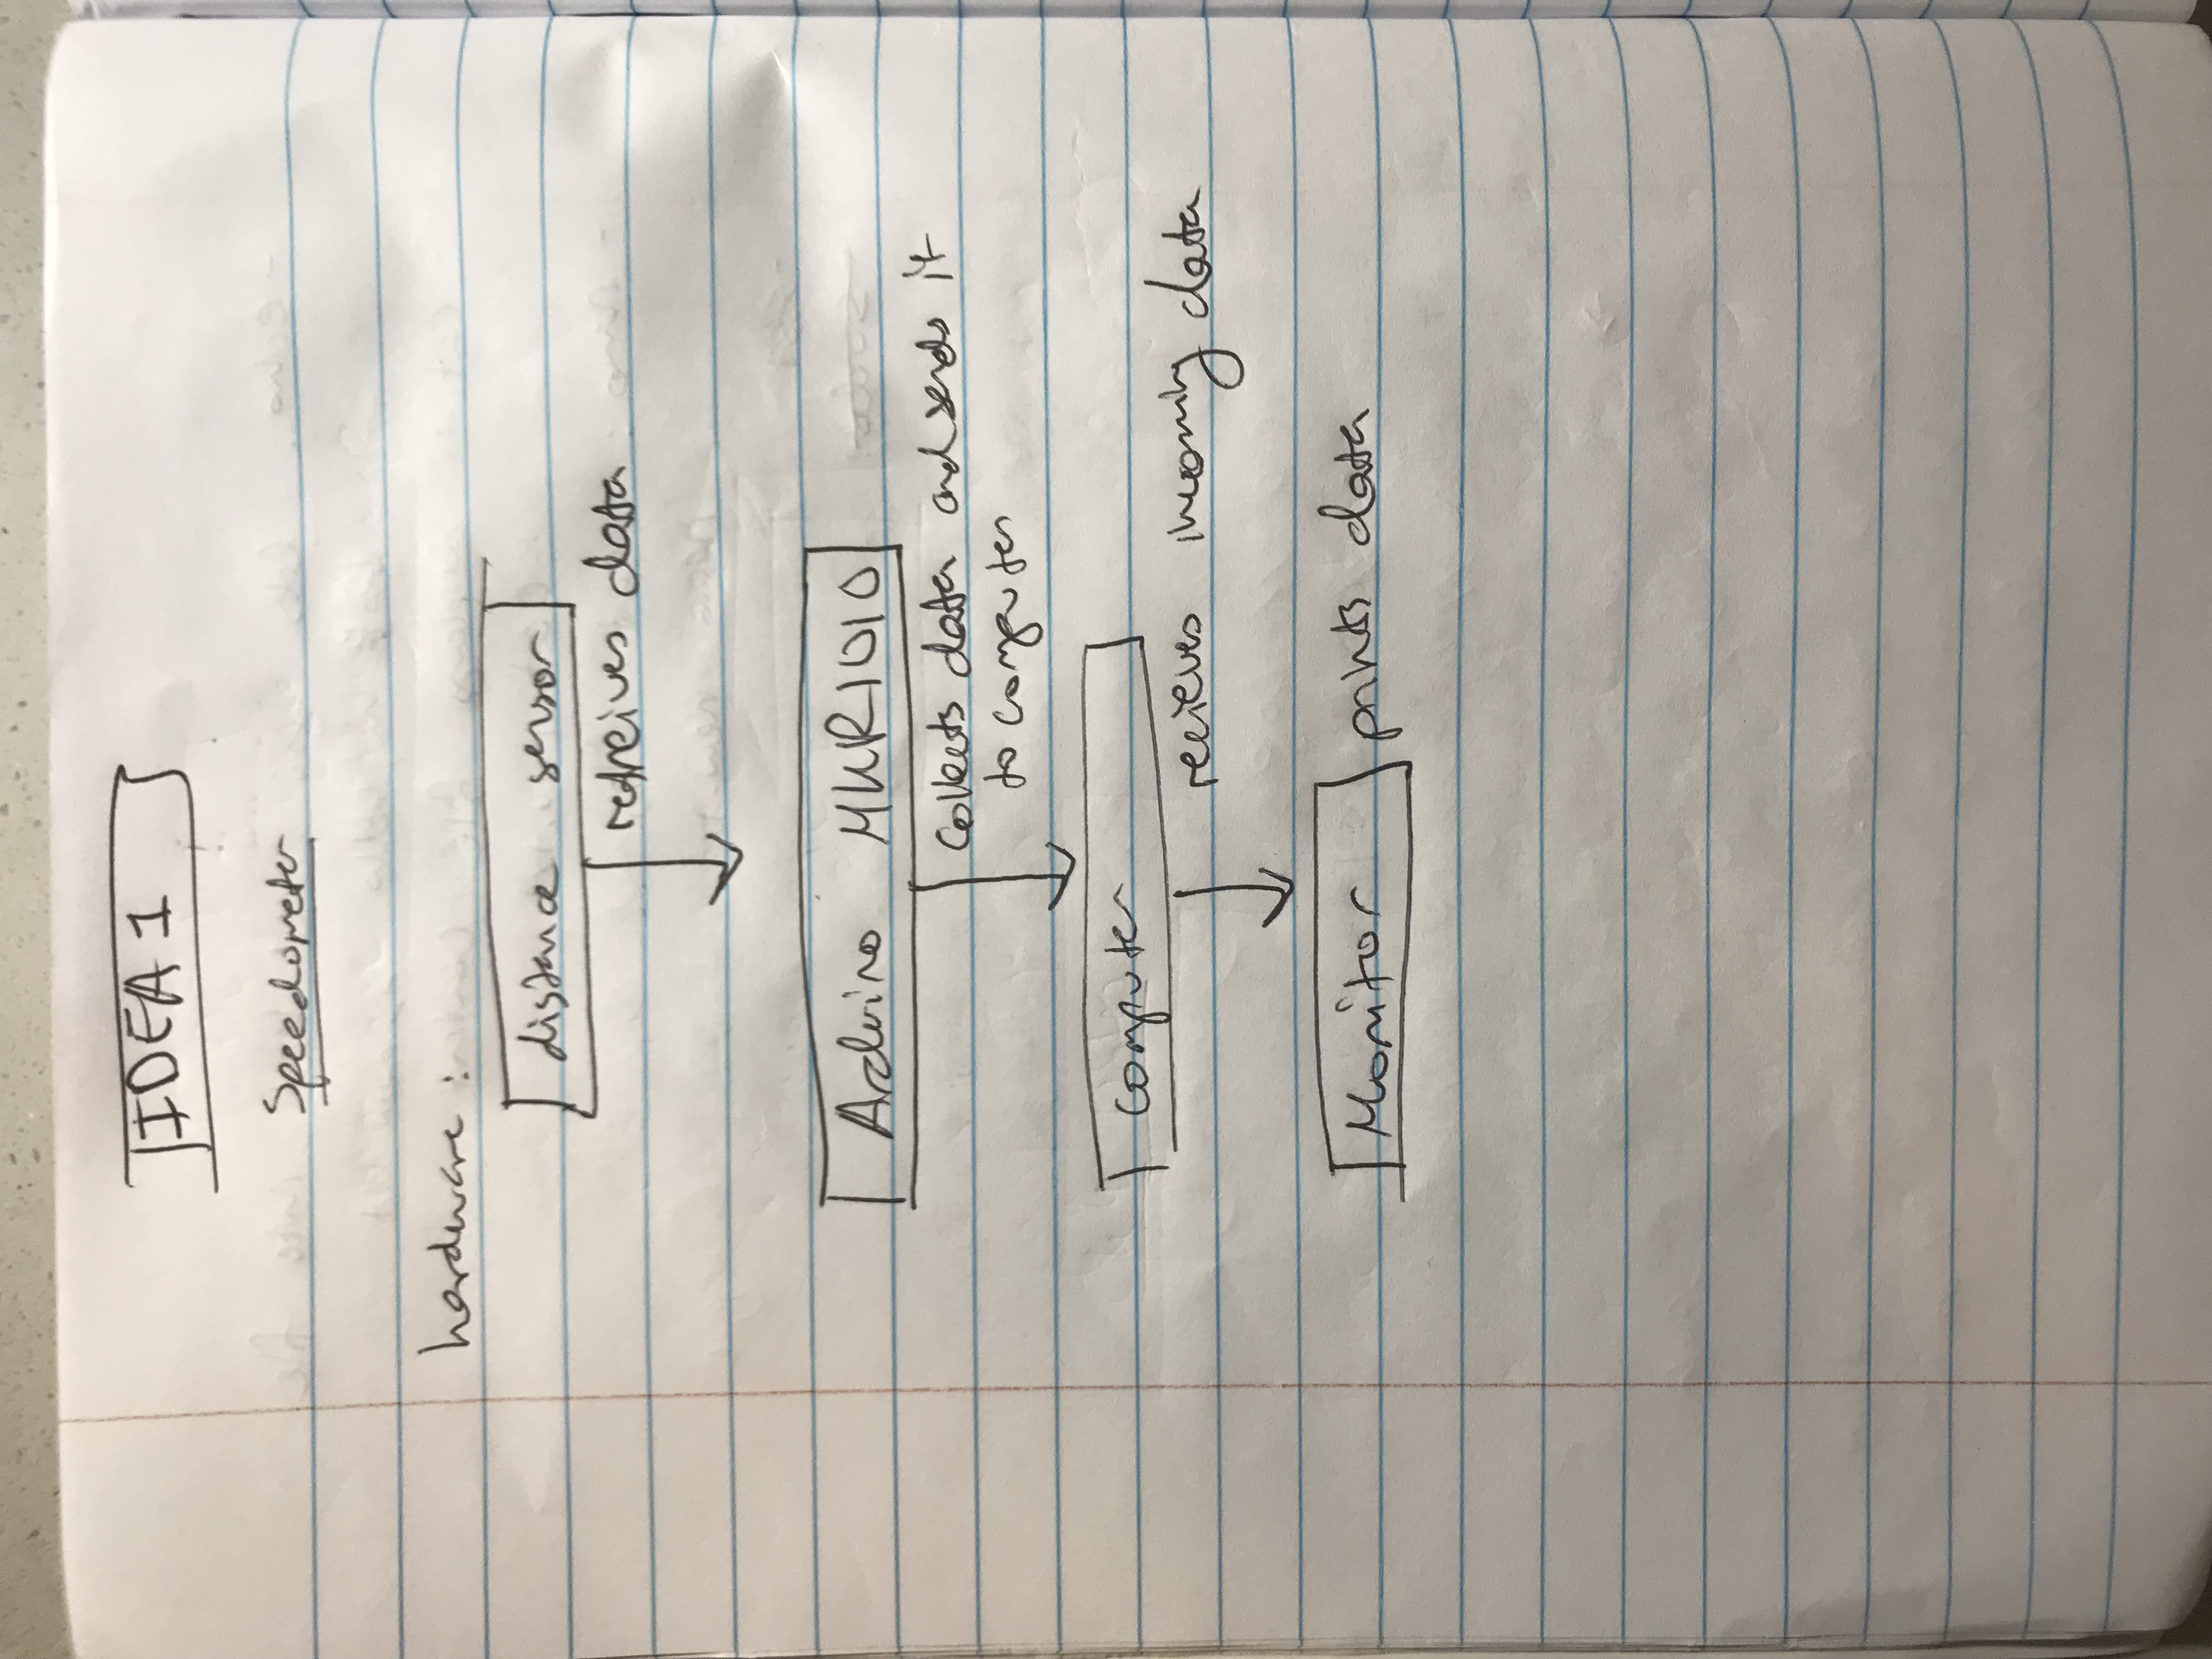 IDEA 1
Speedometer
hardware:
distance sensor
retreives data
Arduino MKR1010
Collects data and sends it
to computer
Computer
recieves incoming data
Monitor prints data